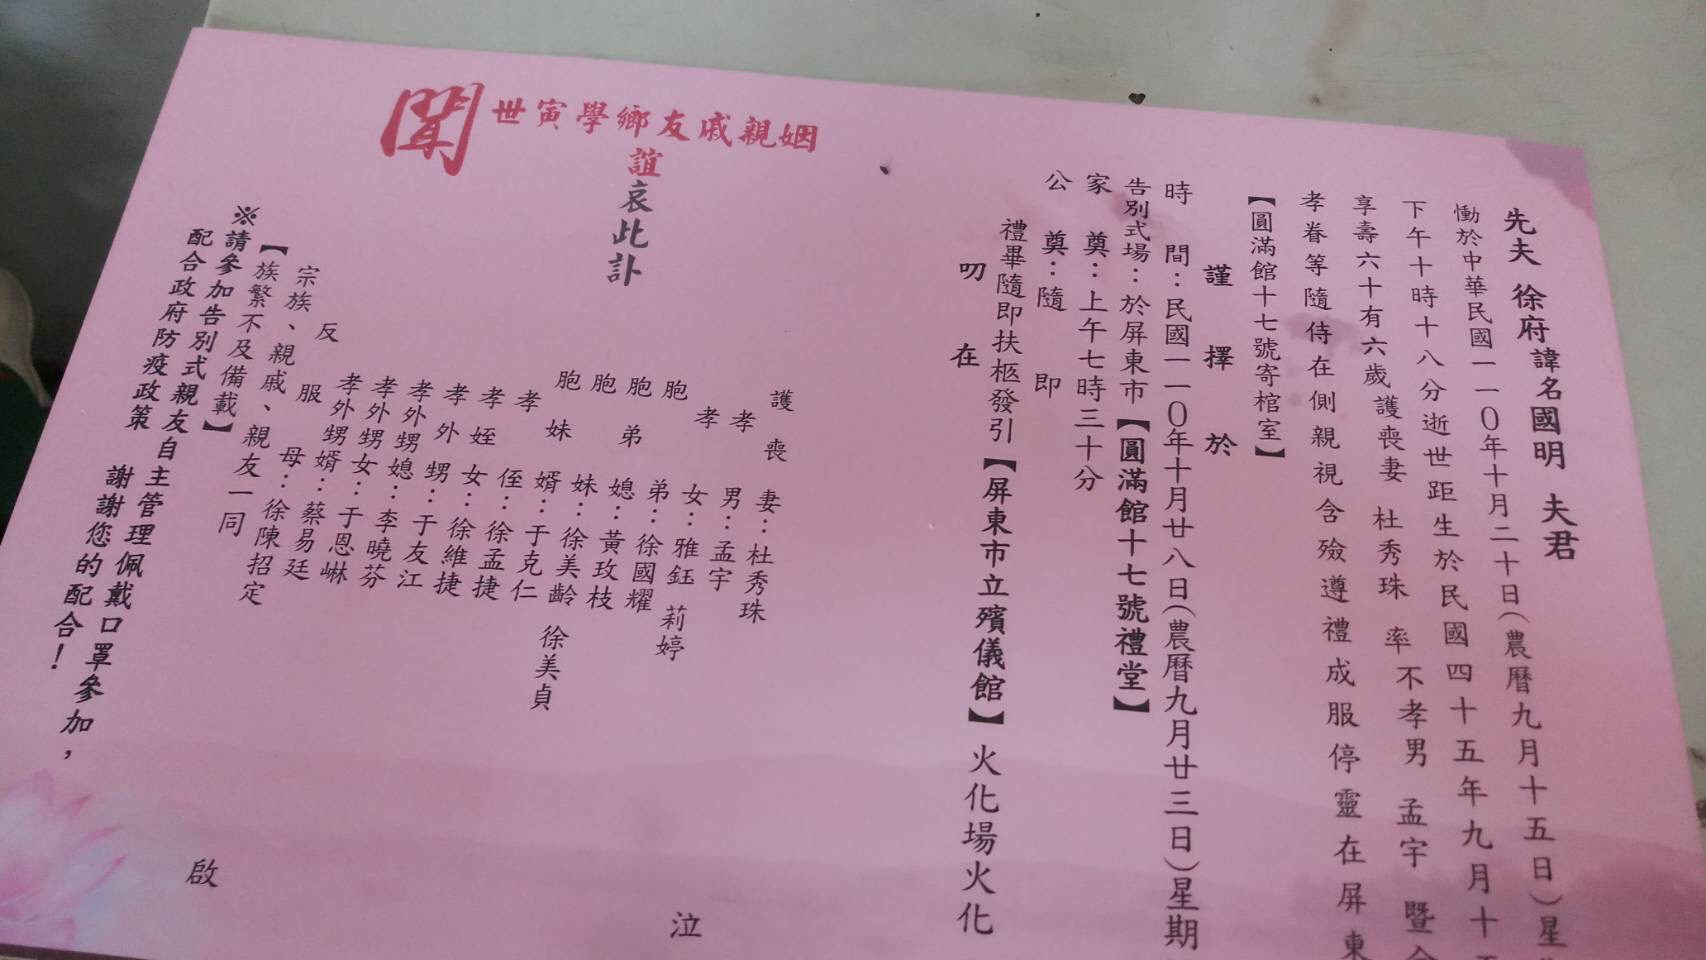 先夫 徐府諱名國明 夫君
慟於中華民國一一〇年十月二十日(農曆九月十五日)星
下午十時十八分逝世距生於民國四十五年九月十
享壽六十有六歲護喪妻 杜秀珠 率不孝男 孟宇 暨
孝眷等隨侍在側親視含殮遵禮成服停靈在屏東
【圓滿館十七號寄棺室】
謹擇於
時間：民國一一〇年十月廿八日(農曆九月廿三日)星期
告別式場：於屏東市【圓滿館十七號禮堂】
家奠：上午七時三十分
公奠：隨即
禮畢隨即扶柩發引【屏東市立殯儀館】火化場火化
叨在
姻親戚友鄉學寅世
誼
聞
哀此訃
護喪妻：杜秀珠
孝男：孟宇
孝女：雅鈺 莉婷
胞弟：徐國耀
胞弟媳：黃玫枝
胞妹：徐美齡 徐美貞
胞妹婿：于克仁
孝侄：徐孟捷
孝姪女：徐維捷
孝外甥：于友江
孝外甥媳：李曉芬
孝外甥女：于恩崊
孝外甥婿：蔡易廷
反服母：徐陳招定
宗族、親戚、親友一同
【族繁不及備載】
※請參加告別式親友自主管理佩戴口罩參加，
配合政府防疫政策 謝謝您的配合！
泣
啟